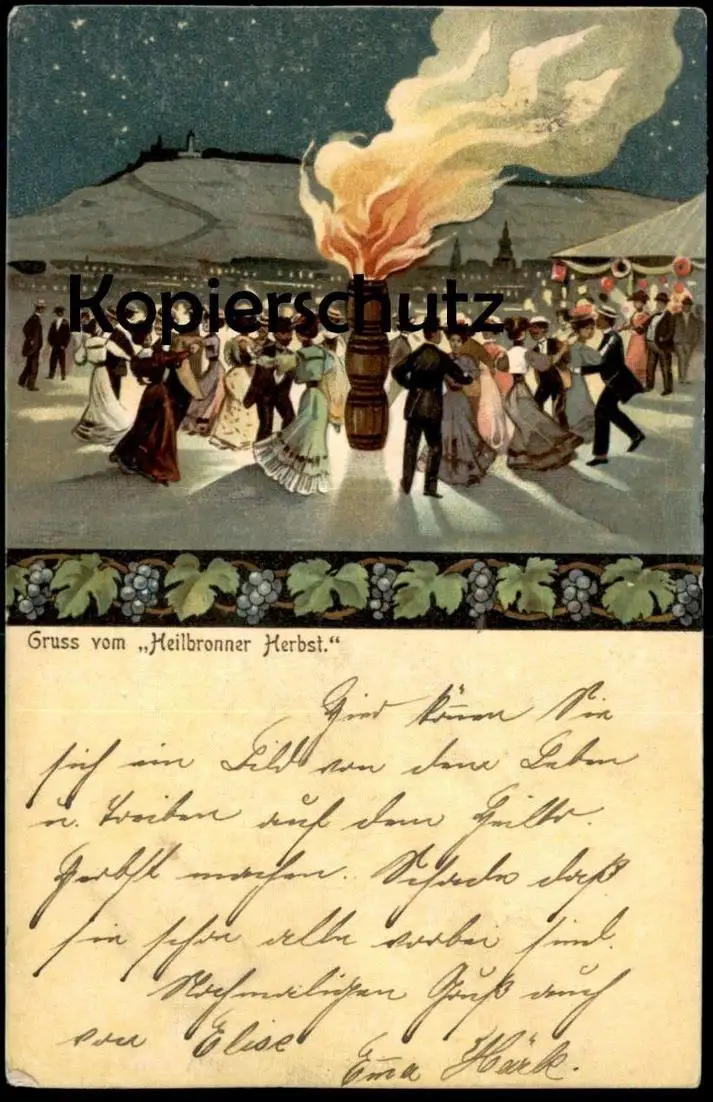 Kopierschutz
Gruss vom „Heilbronner Herbst."
Hier können Sie
sich ein Bild von dem Leben
u. Treiben auf dem Heilbr.
Herbst machen. Schade daß
sie schon alle vorbei sind.
Nochmaligen Gruß auch
von Elise
Emma Härk.